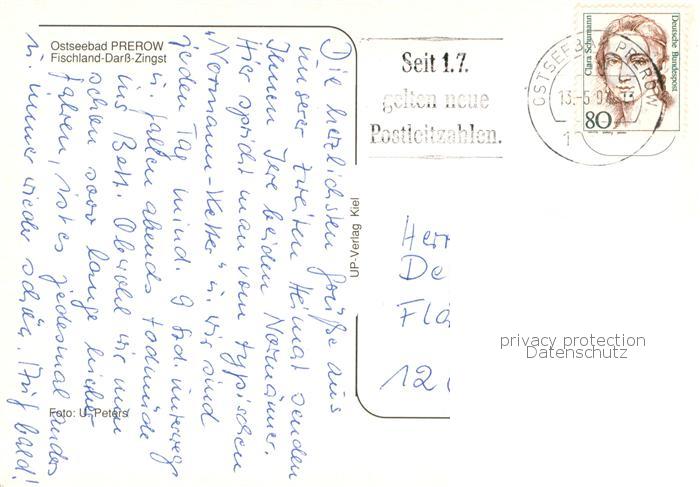 Ostseebad PREROW
Fischland-Darß-Zingst
Die herzlichsten Grüße aus
unserer zweiten Heimat senden
Ihnen Ihre beiden Normänner.
Hier spricht man vom typischen
"Normann-Wetter" u. wir sind
jeden Tag mind. 9 Std. unterwegs
u. fallen abends todmüde
ins Bett. Obwohl wir nun
schon so lange hierher
fahren, ist es jedesmal anders
u. immer wieder schön. Auf bald!
Foto: U. Peters
UP-Verlag Kiel
Seit 1.7.
gelten neue
Postleitzahlen.
OSTSEEB PREROW
13.-5.9
Clara Schumann
Deutsche Bundespost
80
Herr
De
Flä
12
privacy protection
Datenschutz